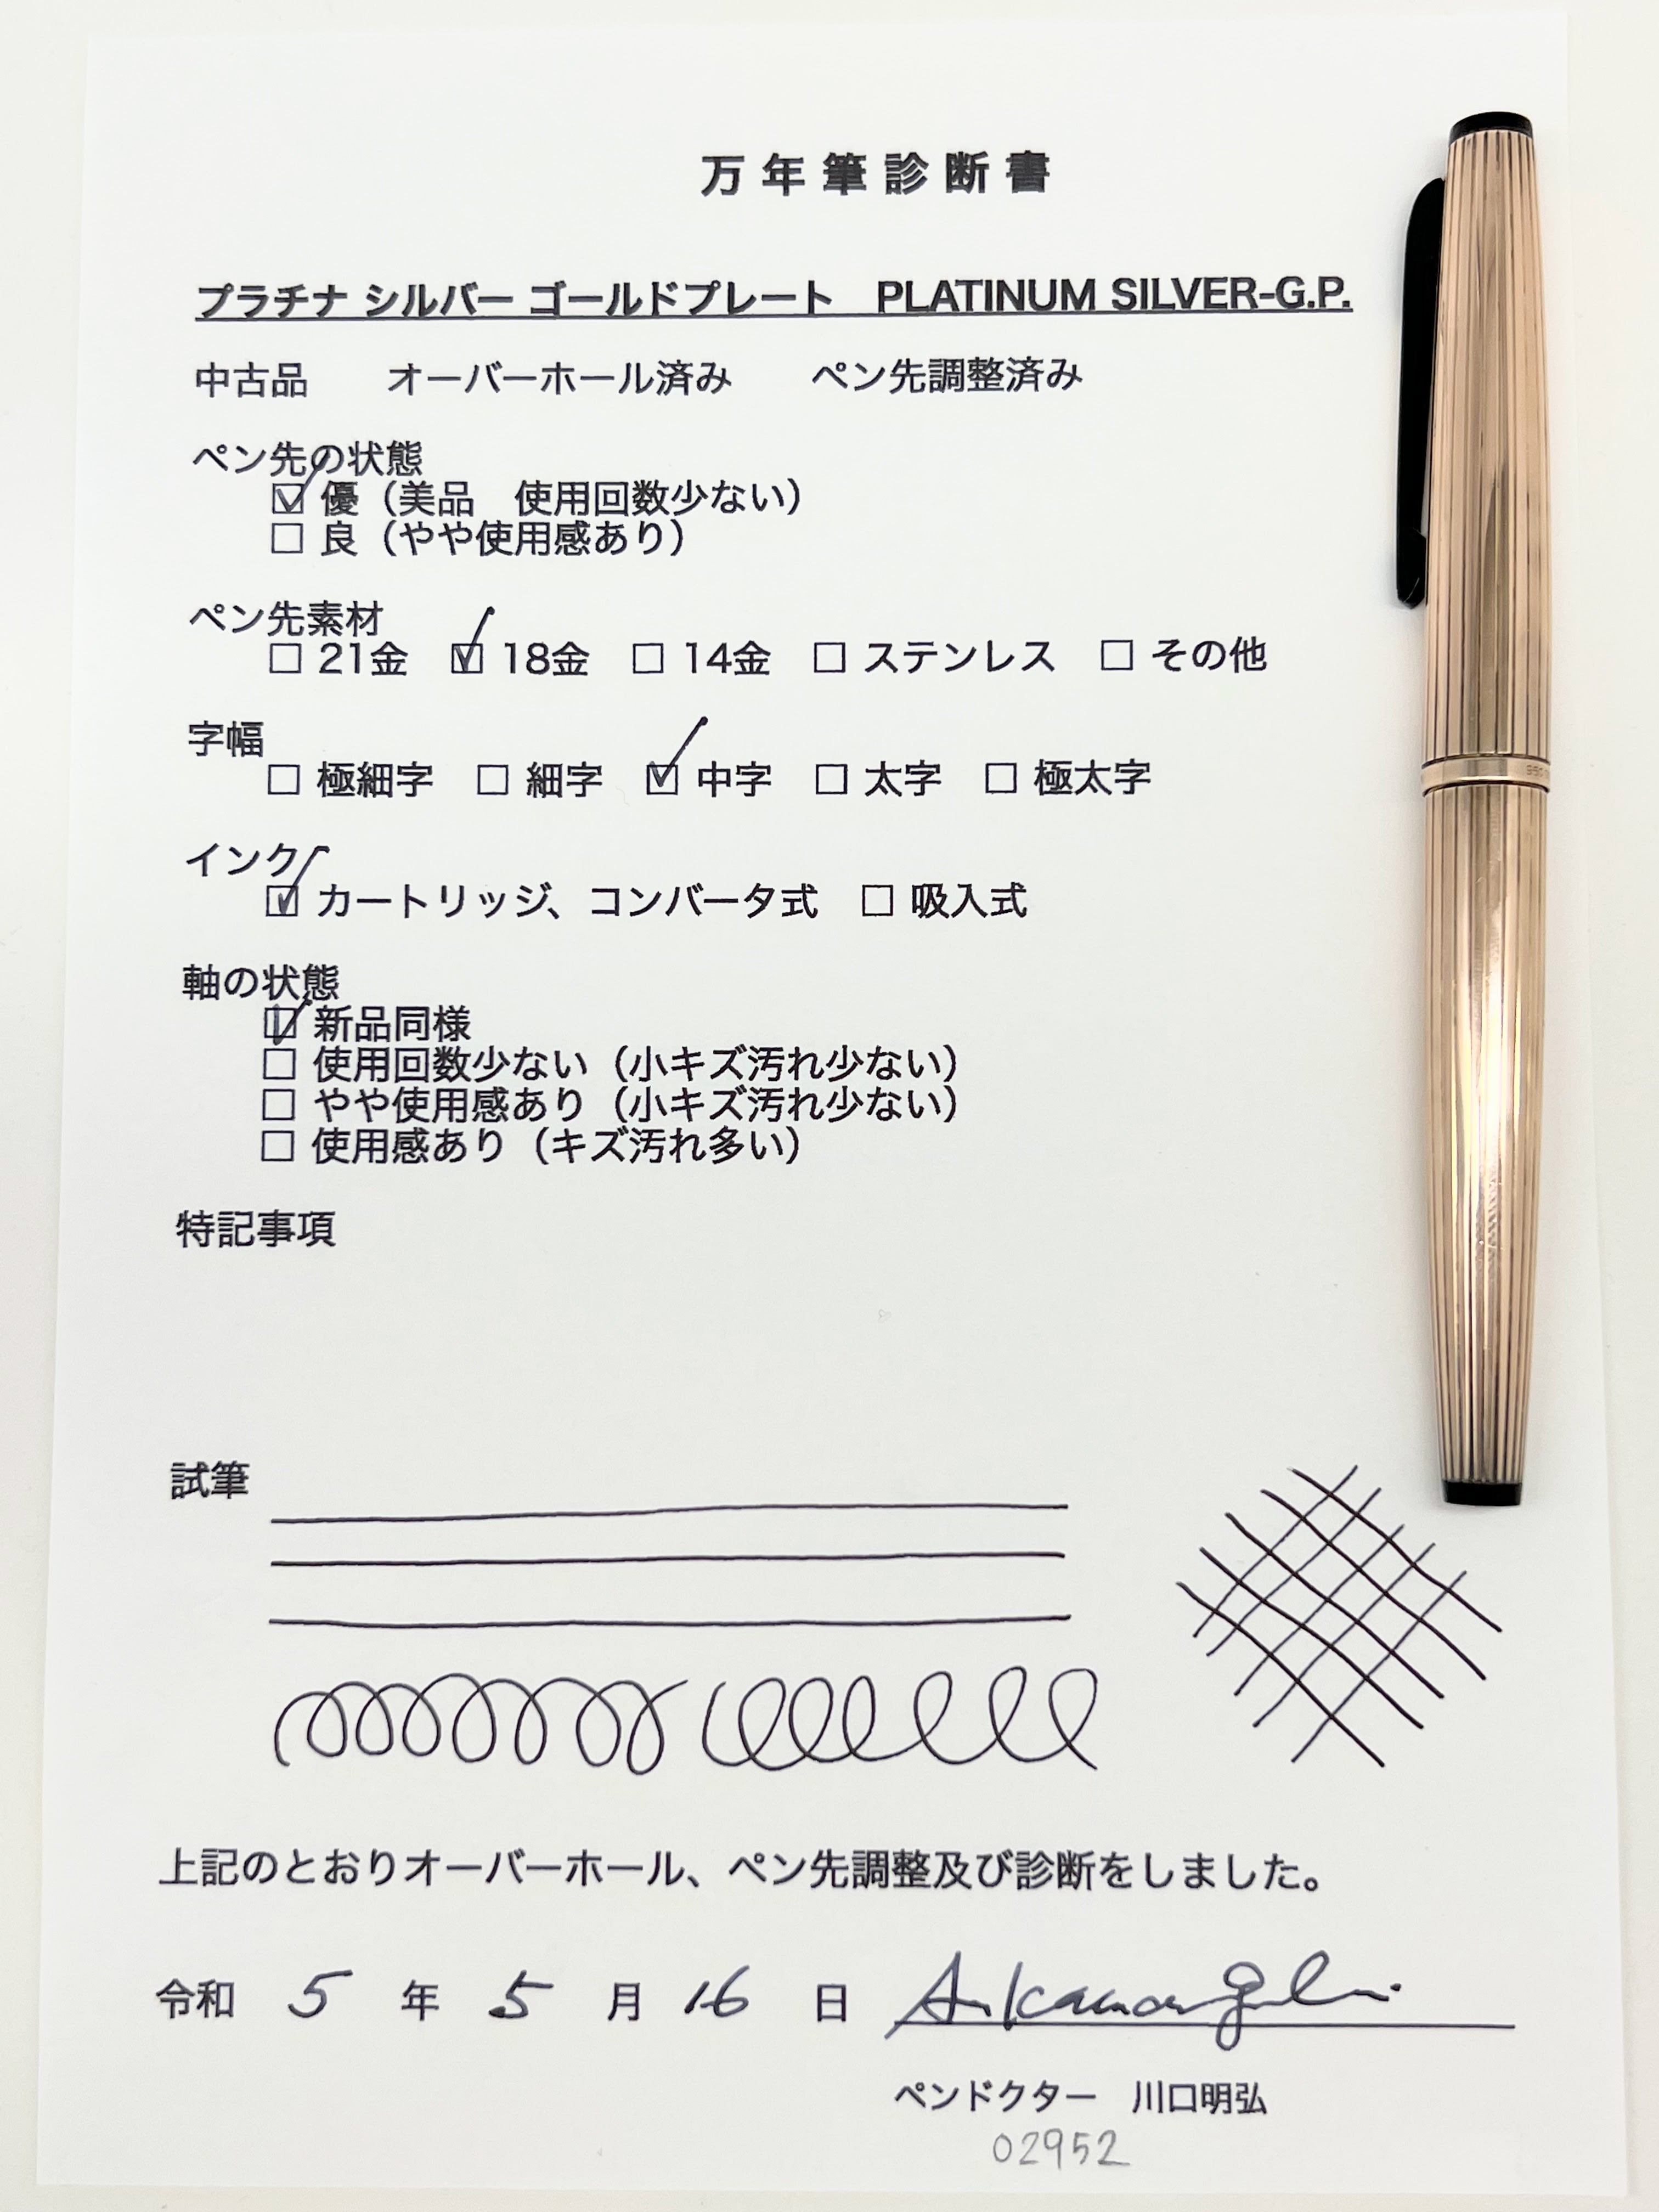 万年筆診断書
プラチナ シルバー ゴールドプレート　PLATINUM SILVER-G.P.
中古品　　オーバーホール済み　　ペン先調整済み
ペン先の状態
☑ 優（美品　使用回数少ない）
☐ 良（やや使用感あり）
ペン先素材
☐ 21金　☑ 18金　☐ 14金　☐ ステンレス　☐ その他
字幅
☐ 極細字　☐ 細字　☑ 中字　☐ 太字　☐ 極太字
インク
☑ カートリッジ、コンバータ式　☐ 吸入式
軸の状態
☑ 新品同様
☐ 使用回数少ない（小キズ汚れ少ない）
☐ やや使用感あり（小キズ汚れ少ない）
☐ 使用感あり（キズ汚れ多い）
特記事項
試筆
上記のとおりオーバーホール、ペン先調整及び診断をしました。
令和　5　年　5　月　16　日　A. Kawaguchi
ペンドクター　川口明弘
02952